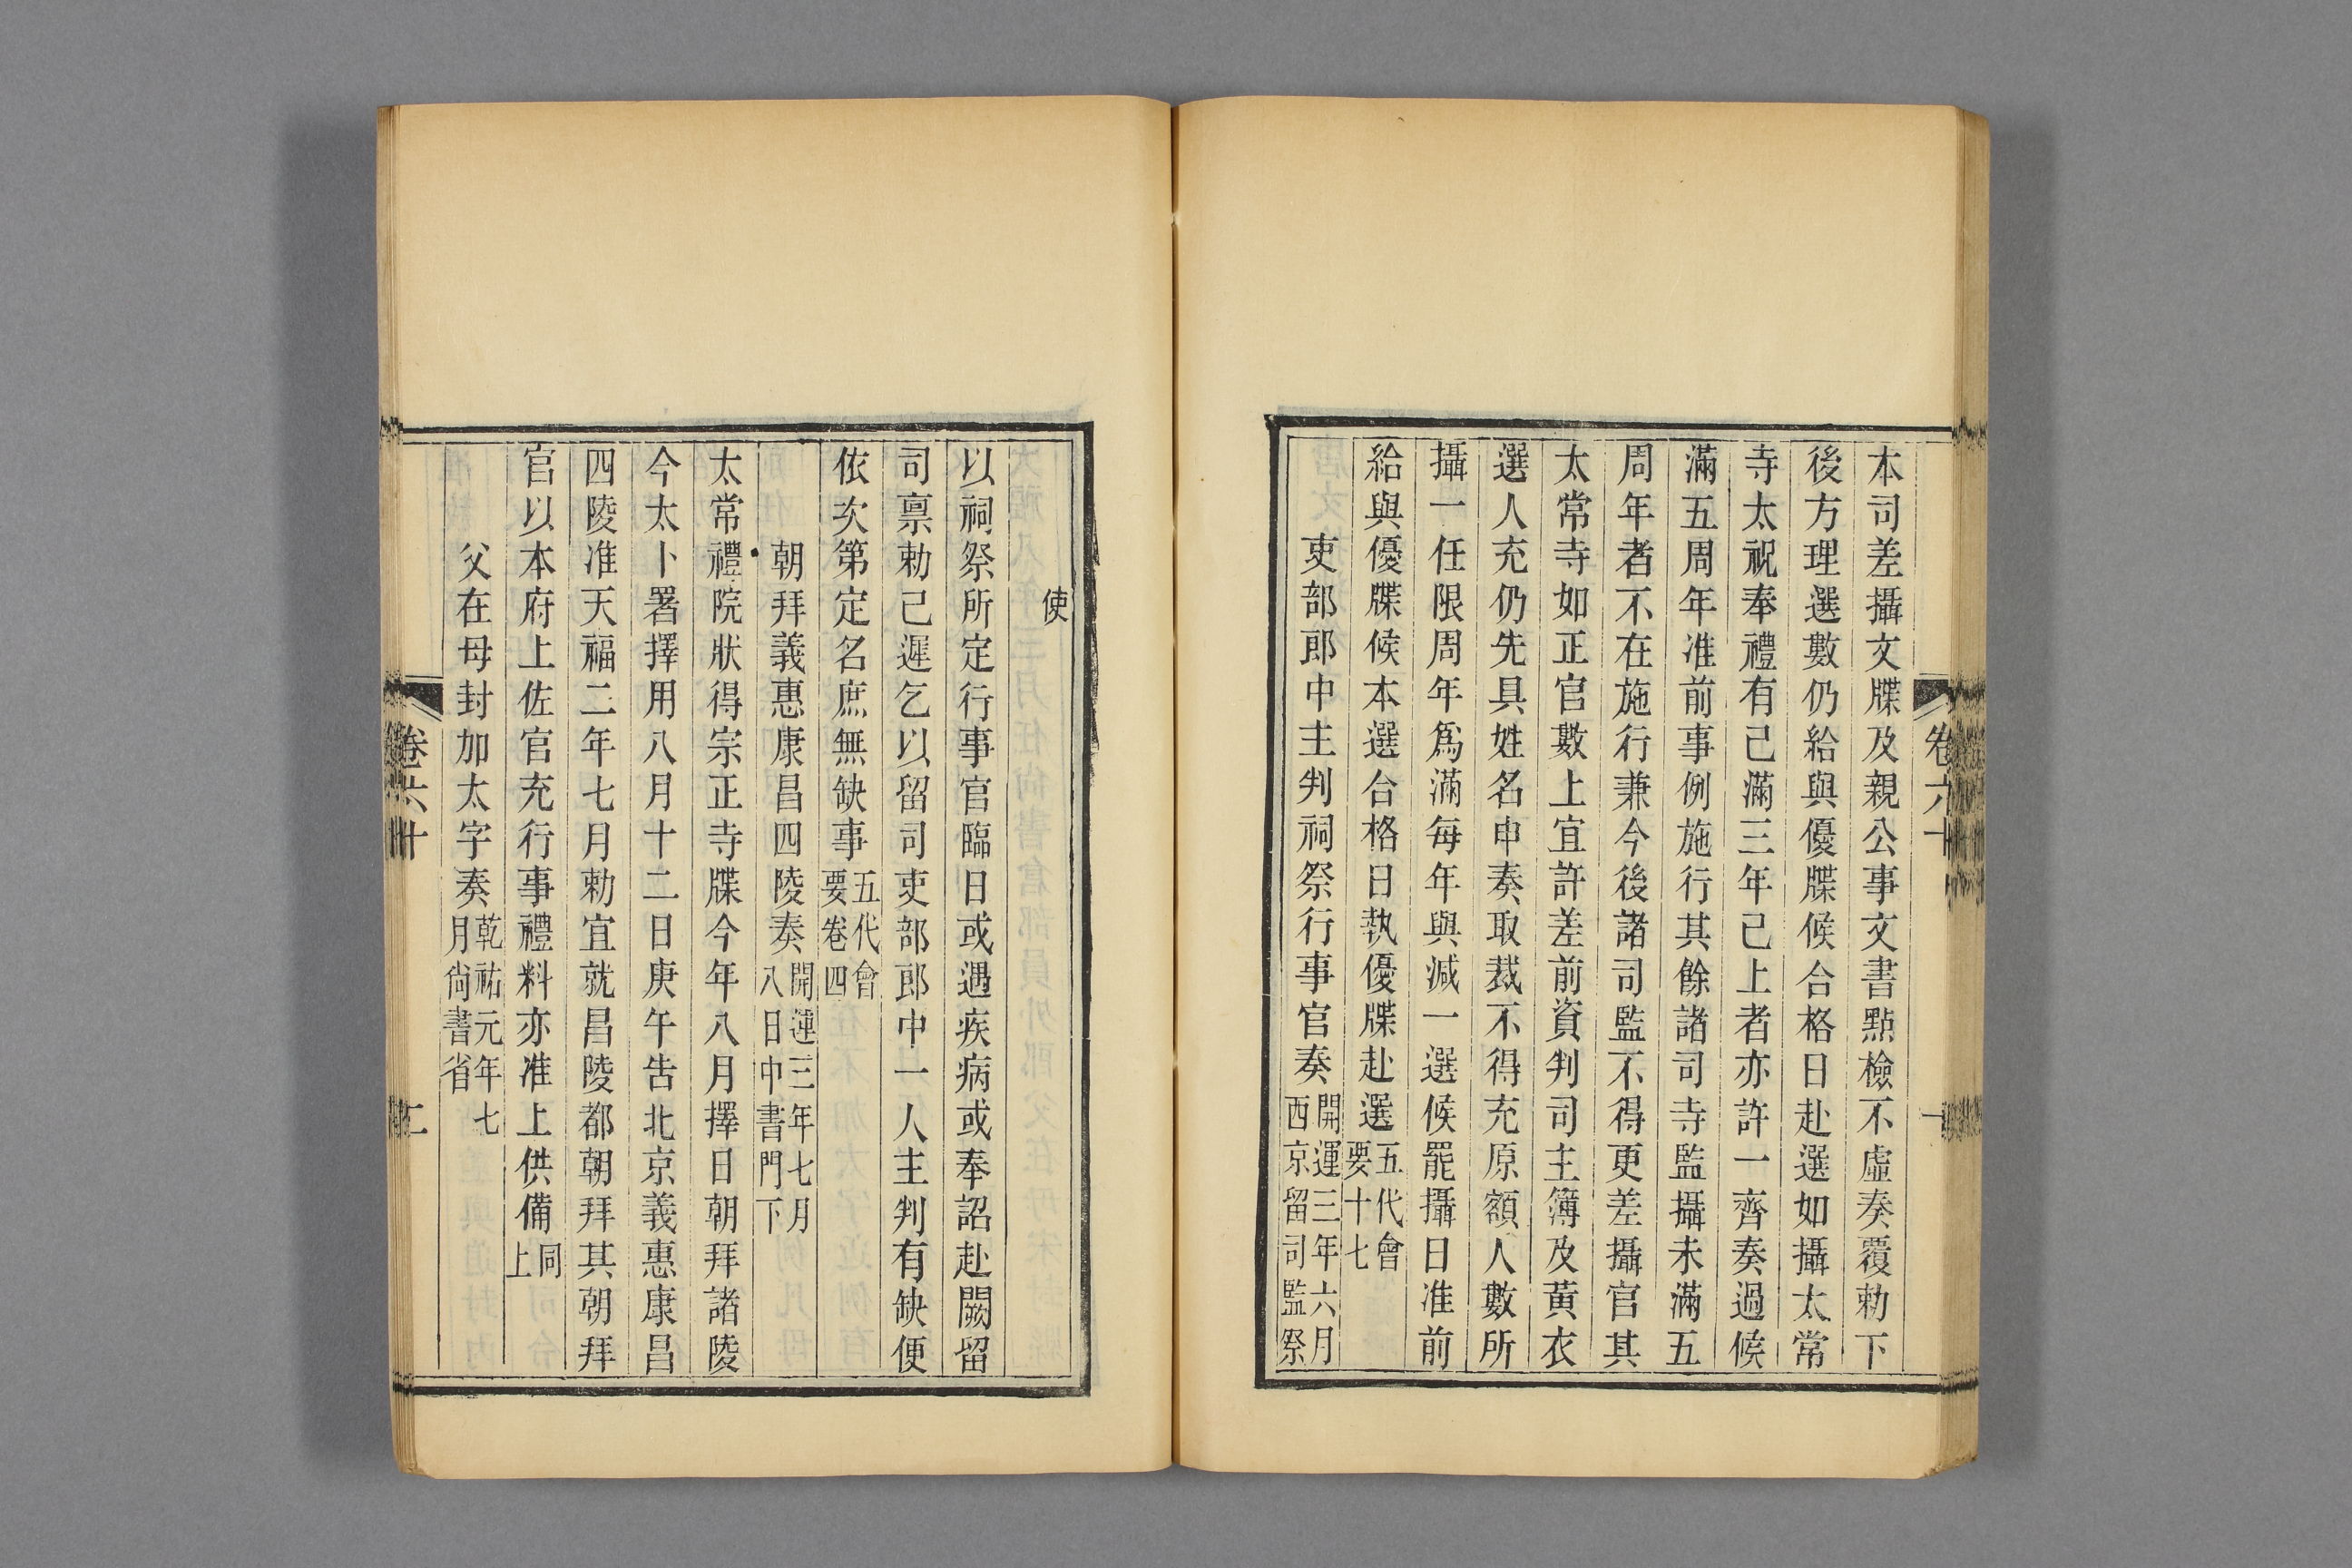 本司差攝文牒及親公事文書點檢不虛奏覆勅下
後方理選數仍給與優牒候合格日赴選如攝太常
寺太祝奉禮有己滿三年己上者亦許一齊奏過候
滿五周年准前事例施行其餘諸司寺監攝未滿五
周年者不在施行兼今後諸司監不得更差攝官其
太常寺如正官數上宜許差前資判司主簿及黃衣
選人充仍先具姓名申奏取裁不得充原額人數所
攝一任限周年爲滿每年與減一選候罷攝日准前
給與優牒候本選合格日執優牒赴選五代會要十七
吏部郎中主判祠祭行事官奏開運三年六月西京留司監祭
使
以祠祭所定行事官臨日或遇疾病或奉詔赴闕留
司禀勅己遲乞以留司吏部郎中一人主判有缺便
依次第定名庶無缺事五代會要卷四
朝拜義惠康昌四陵奏開運三年七月八日中書門下
太常禮院狀得宗正寺牒今年八月擇日朝拜諸陵
今太卜署擇用八月十二日庚午告北京義惠康昌
四陵准天福二年七月勅宜就昌陵都朝拜其朝拜
官以本府上佐官充行事禮料亦准上供備同上
父在母封加太字奏乾祐元年七月尙書省
卷六十